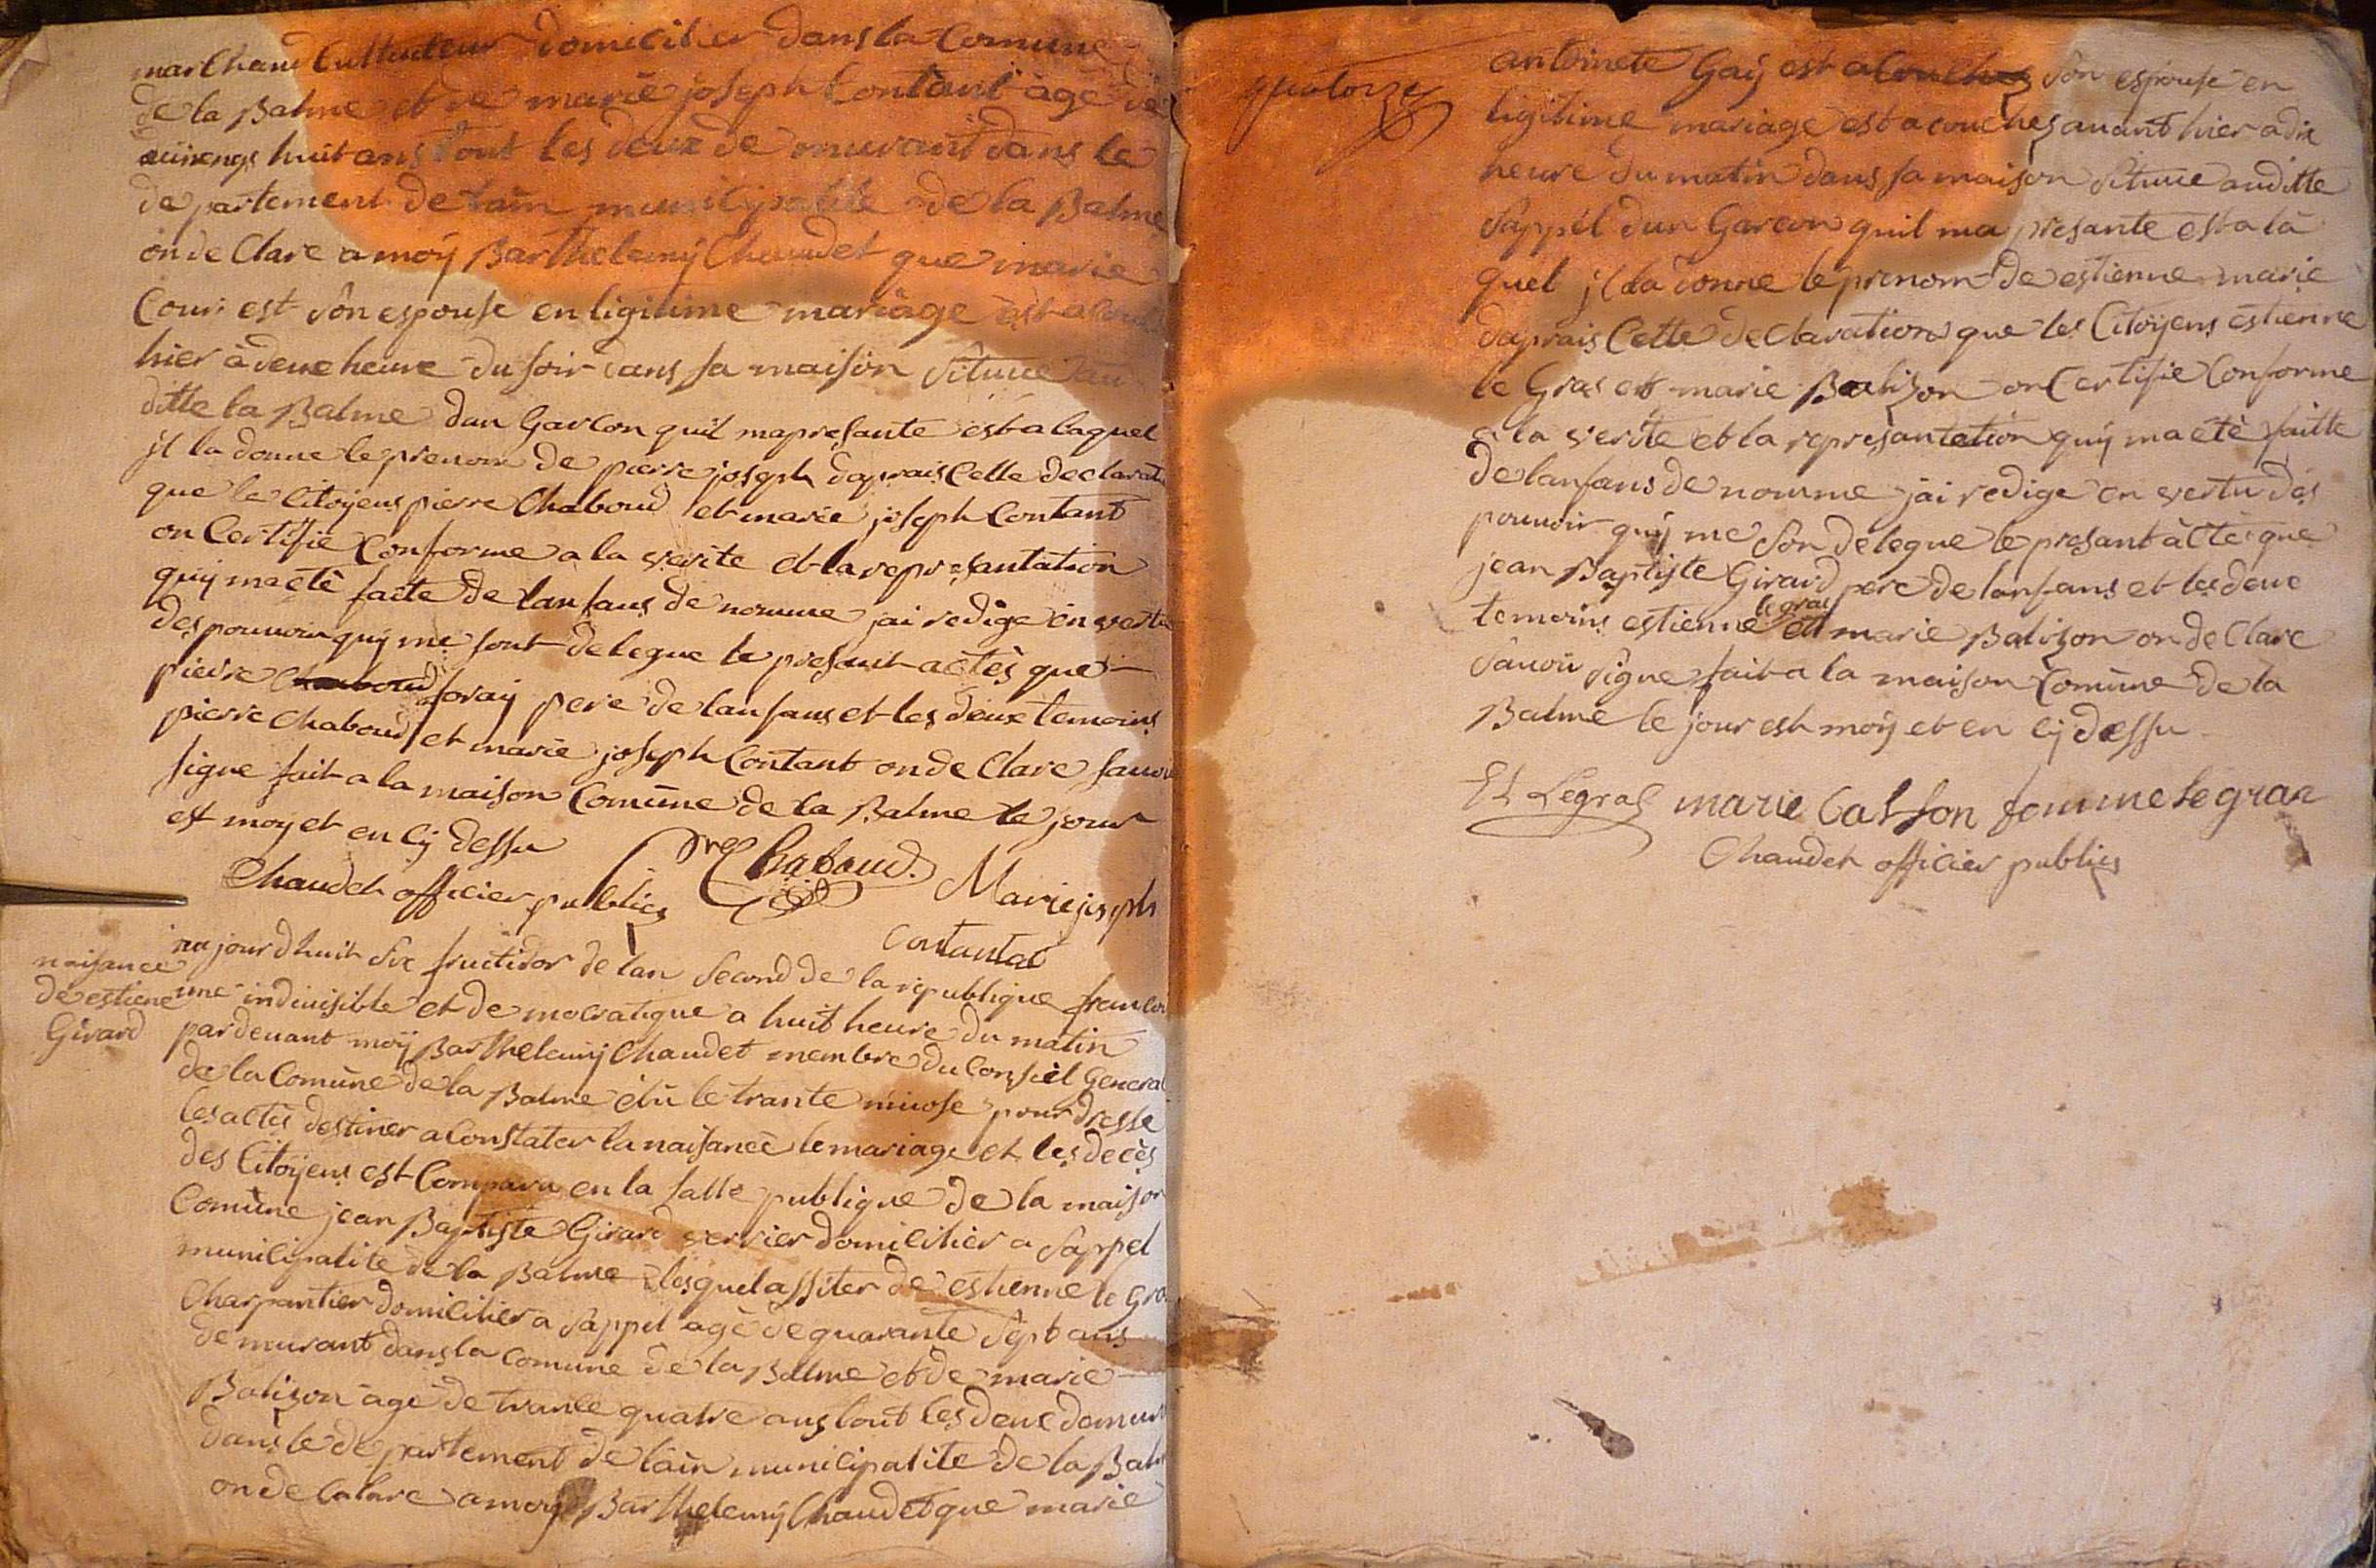 marchand Cultivateur domicilier dans la Comune
de la Balme et de marie joseph Contant âgé de
huit ans tout les deux de murant dans le
de partement de lain municipalité de la Balme
on de Clare a moÿ Barthelemÿ Chaudet que marie
Cour est son espouse en ligitime mariage est acouc
hier à deue heure du soir dans sa maison situue au
ditte la Balme dun Garcon quil mapresante est a laquel
jl la donne le prenom de pierre joseph daprais Cette declarat
que le Citoyens pierre Chaboud et marie joseph Contant
on Certifie Conforme a la verite et la represantation
quÿ ma etè faite de lanfans de nomme jai redige en vertu
des pouvoir quÿ me sont delegue le presant actès que
pierre Chaboud foraÿ pere de lanfans et les deux temoins
pierre Chaboud et marie joseph Contant on de Clare savoir
signe fait a la maison Comune de la Balme le jour
est moy et en cÿ dessu
Chaudet officier publics pre Chaboud. Marie jisph
Contantas
naisance
de estiene
Girard
aujourdhuit six fructidor de lan second de la republique francoi
une indivisible et de mocratique a huit heure du matin
pardevant moÿ Barthelemÿ Chaudet membre du Consiel General
de la Comune de la Balme élû le trante nivose pour dresse
les actès destiner a Constater la naisance le mariage et les decès
des Citoÿens est Comparu en la salle publique de la maison
Comune jean Baptiste Girard verrier domicilier a sappel
municipalite de la Balme lesquel assiter de estienne le Gra
Charpantier domicilier a sappel age de quarante sept ans
de murant dans la comune de la Balme et de marie
Balizon age de trante quatre ans tout les deux demura
dans le de partement de lain municipalite de la Balm
on de Calare a moÿ Barthelemÿ Chaudet que marie
quatorze
antoinete Gaÿ est acouches son espouse en
ligitime mariage est acouches avant hier a dix
heure du matin dans sa maison situue auditte
sappel dun Garcon quil ma presante est a là
quel jl la donne le prenom de estienne marie
daprais Cette declaration que les Citoÿens estienne
le Gras et marie Balizon on Certifie Conforme
a la verite et la represantation quÿ ma etè faitte
de lanfans de nomme jai redige en vertu des
pouvoir quÿ me son delegue le presant àctè que
jean Baptiste Girard pere de lanfans et les deue
temoins estienne legras et marie Balizon on de Clare
savoir signe fait a la maison Comune de la
Balme le jour est moÿ et en cÿ dessu
Et Legras marie Calsson femme le gras
Chaudet officier publics